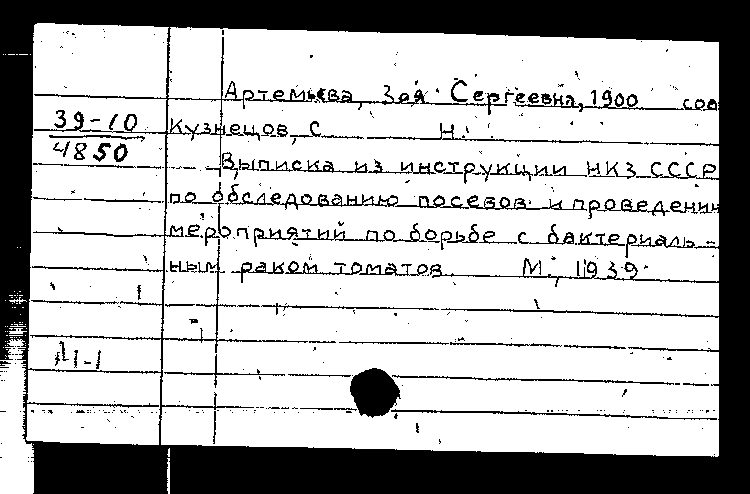 Артемьева, Зоя Сергеевна, 1900 соа
39-10
4850
Кузнецов, С Н.
Выписка из инструкции НКЗ СССР
по обследованию посевов и проведени
мероприятий по борьбе с бактериаль-
ным раком томатов. М., 1939.
Д1-1